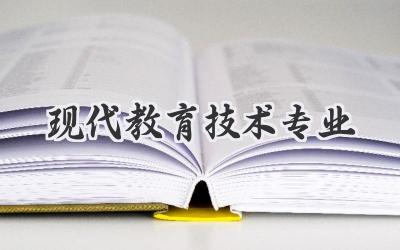 现代教育技术专业